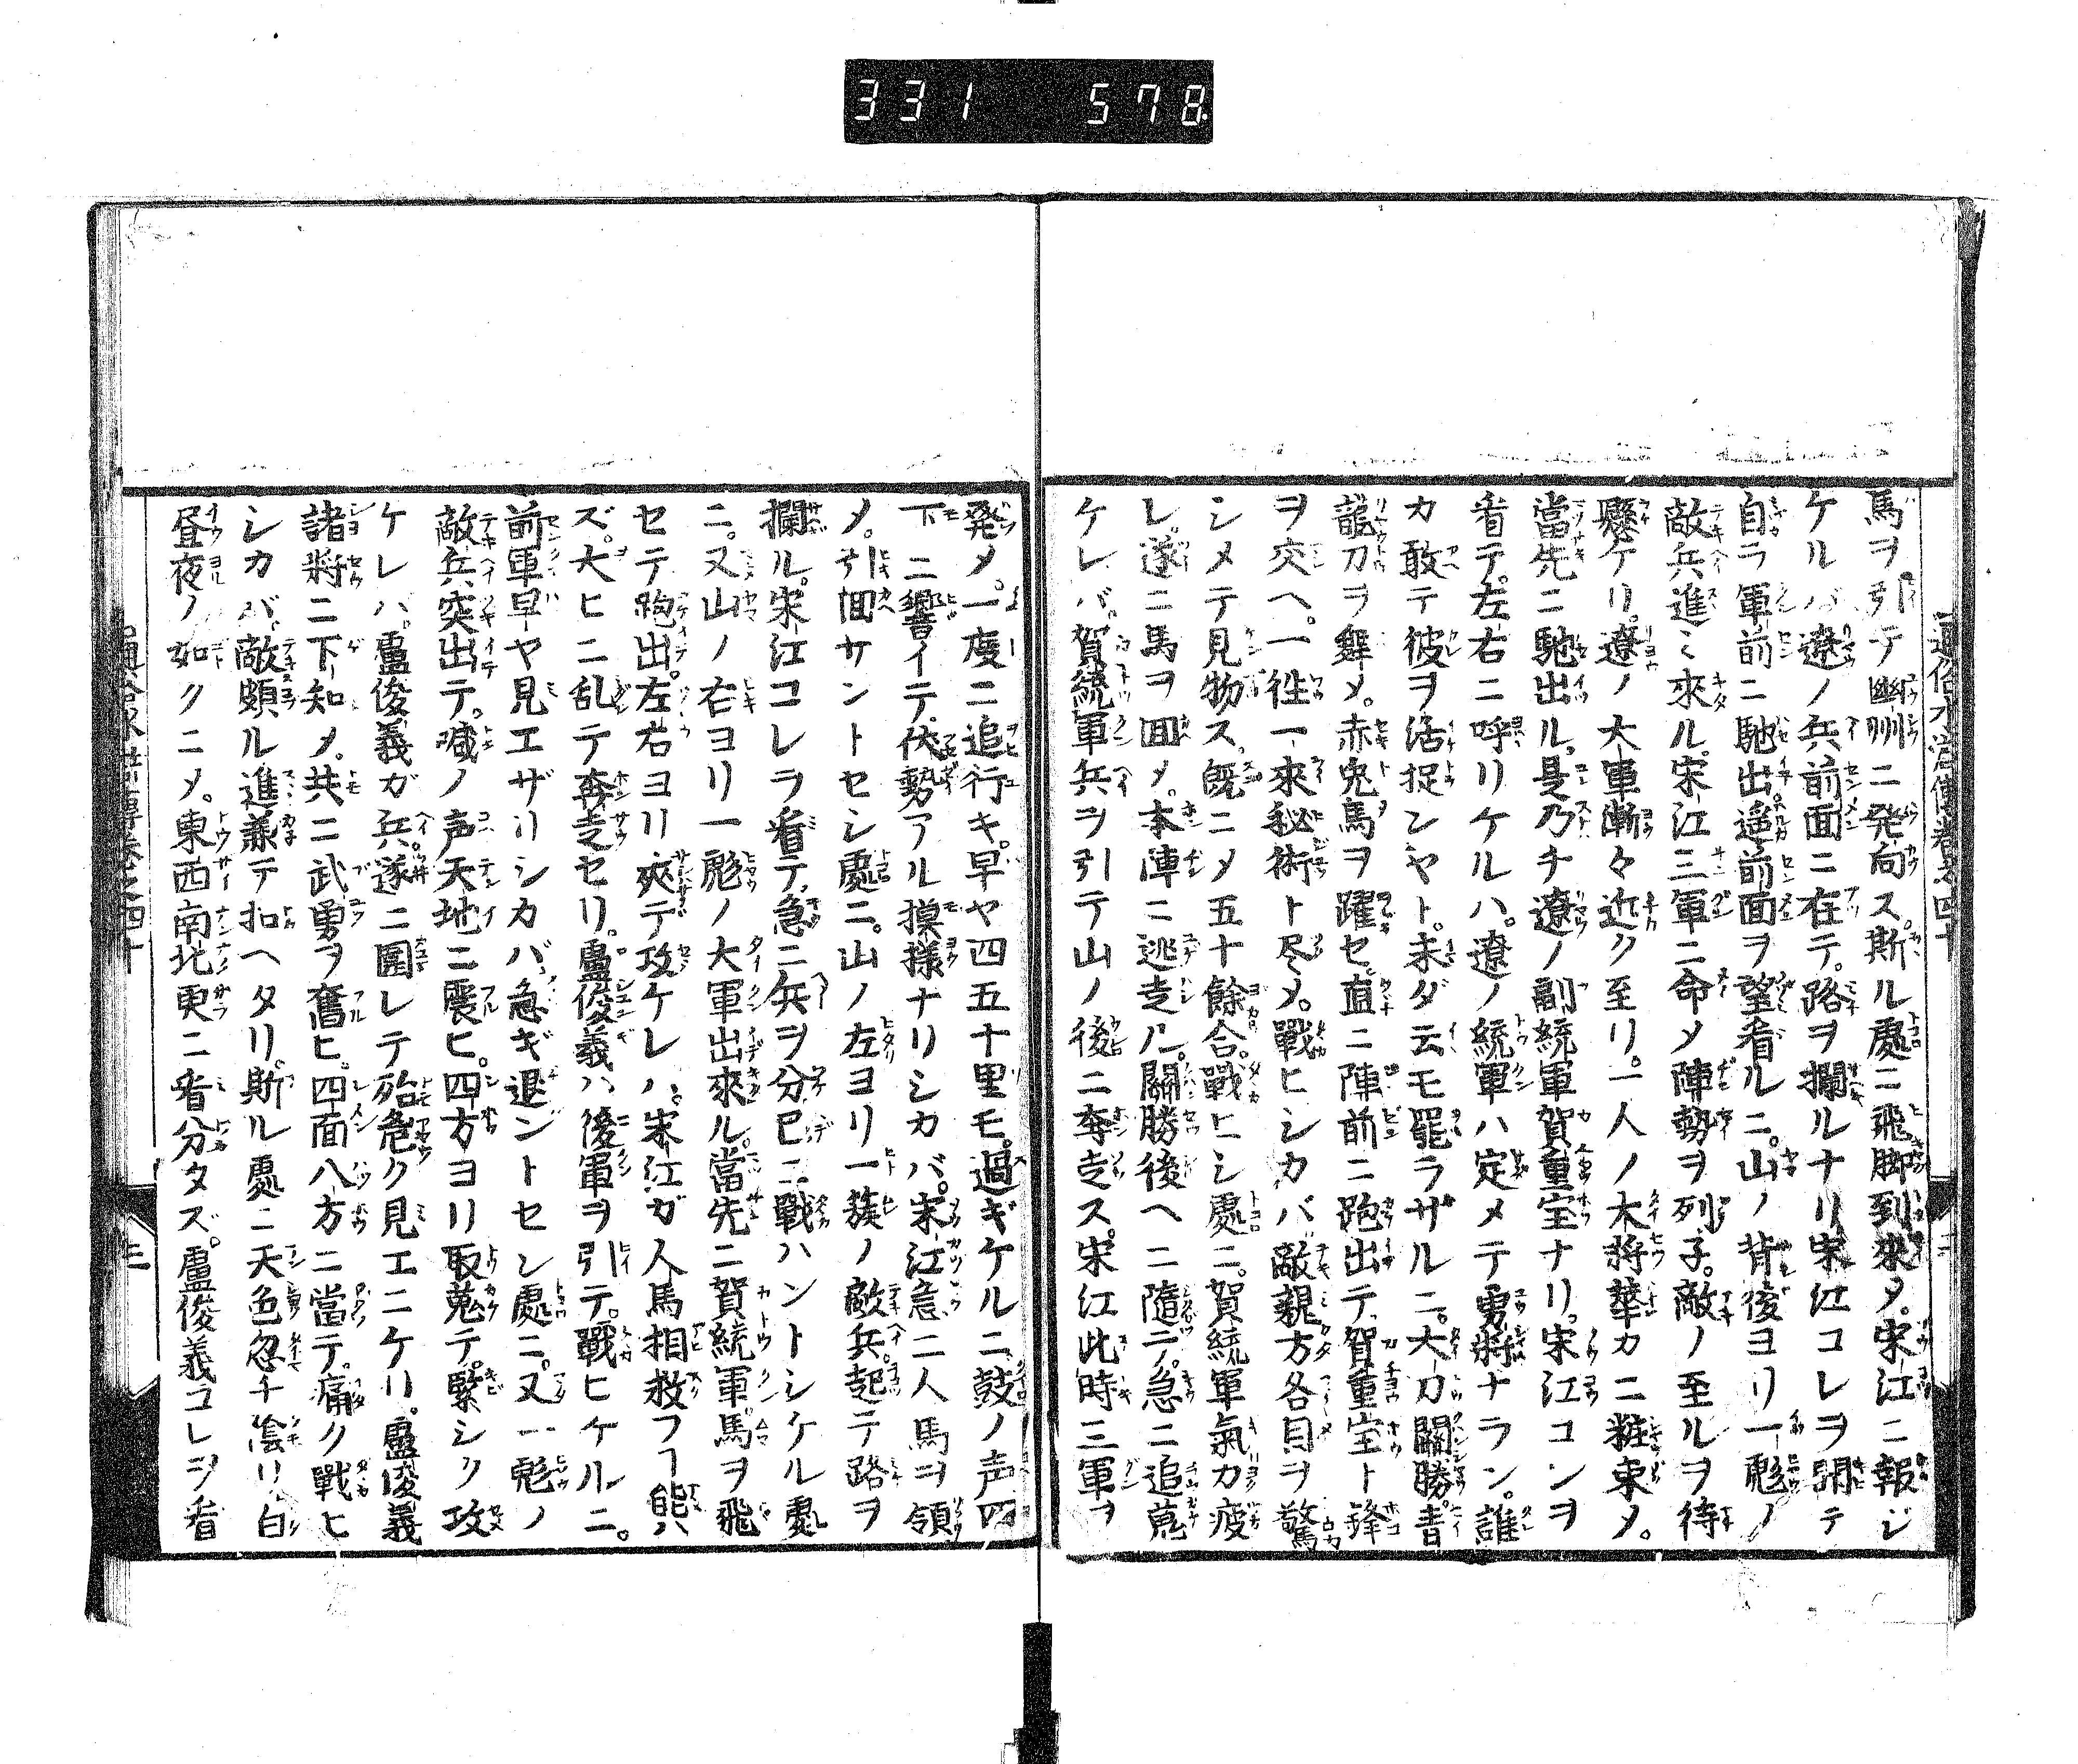 331 578
馬ヲ引テ幽州ニ発向ス。斯ル處ニ飛脚到來メ。宋江ニ報ジ
ケルハ遼ノ兵前面ニ在テ。路ヲ攔ルナリ宋江コレヲ聞テ
自ラ軍前ニ馳出遥前面ヲ望看ルニ。山ノ背後ヨリ一彪ノ
敵兵進ミ來ル。宋江三軍ニ命メ陣勢ヲ列子。敵ノ至ルヲ待
懸ケリ。遼ノ大軍漸々近ク至リ。一人ノ大將華カニ粧束メ。
當先ニ馳出ル是乃チ遼ノ副統軍賀重宝ナリ。宋江コレヲ
看テ。左右ニ呼リケルハ。遼ノ統軍ハ定メテ勇將ナラン。誰
カ敢テ彼ヲ活捉ンヤト。未ダ云モ罷ラザルニ。大刀關勝。青
龍刀ヲ舞メ。赤兎馬ヲ躍セ。直ニ陣前ニ跑出テ。賀重宝ト鋒
ヲ交ヘ。一徃一來秘術ト尽メ。戰ヒシカバ敵親方各目ヲ驚
シメテ見物ス。既ニメ五十餘合。戰ヒシ處ニ。賀統軍氣力疲
レ。遂ニ馬ヲ囬メ。本陣ニ逃走ル。關勝後ヘニ隨テ。急ニ追蒐
ケレバ。賀統軍兵ヲ引テ山ノ後ニ奔走ス。宋江此時三軍ヲ
通俗水滸傳卷之四十
発メ。一度ニ追行キ。早ヤ四五十里モ。過ギケルニ鼓ノ声四
下ニ響イテ。伏勢アル摸樣ナリシカバ。宋江急ニ人馬ヲ領
メ。引囬サントセシ處ニ。山ノ左ヨリ一簇ノ敵兵。起テ路ヲ
攔ル。宋江コレラ看テ。急ニ兵ヲ分已ニ戰ハントシケル處
ニ。又山ノ右ヨリ一彪ノ大軍出來ル。當先ニ賀統軍馬ヲ飛
セテ跑出。左右ヨリ夾テ攻ケレハ。宋江ガ人馬相救フヿ能ハ
ズ。大ヒニ乱テ奔走セリ。盧俊義ハ後軍ヲ引テ。戰ヒケルニ。
前軍早ヤ見エザリシカバ。急ギ退ントセシ處ニ。又一彪ノ
敵兵突出テ。喊ノ声天地ニ震ヒ。四方ヨリ取蒐テ。緊シク攻
ケレハ。盧俊義ガ兵。遂ニ圍レテ殆危ク見エニケリ。盧俊義
諸將ニ下知メ。共ニ武勇ヲ奮ヒ。四面八方ニ當テ。痛ク戰ヒ
シカバ。敵頗ル進兼テ扣ヘタリ。斯ル處ニ天色忽チ陰リ白
昼夜ノ如クニメ。東西南北更ニ看分タズ。盧俊義コレヲ看
通俗水滸傳卷之四十
三